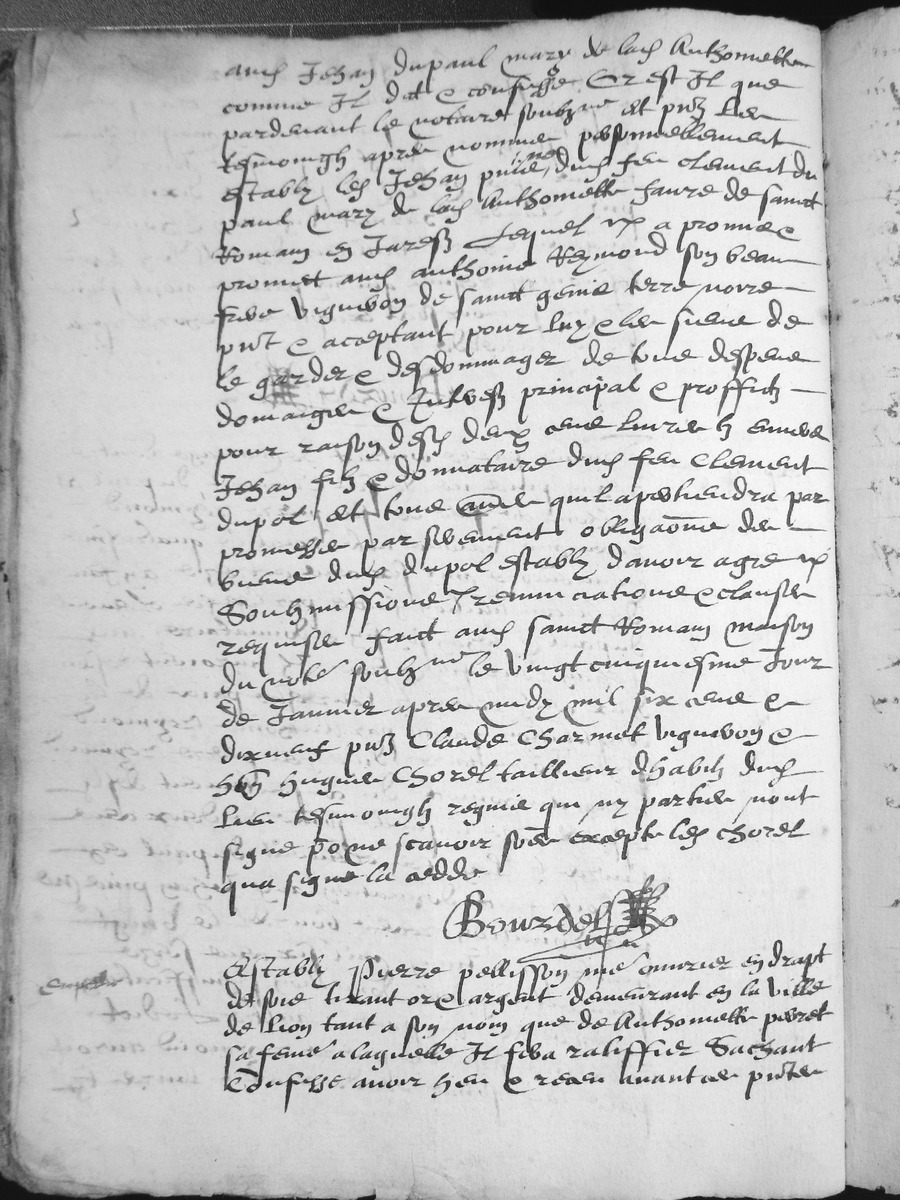 avec Jehan dupaul mary de lad Anthoniette
comme Il dit & confesse Or est Il que
pardevant le notaire soubzne et pntz les
tesmoingh apres nommes personnellement
estably led Jehan dud feu clement du
paul mary de lad Anthoniette faure de sainct
Romain en Jarestz Lequel a promis &
promect aud anthoine Reymond son beau
frere vigneron de sainct genis terre noire
pnt & acceptant pour luy & les siens de
le garder & desdommager de tous despens
domaiges & Intherestz principal & proffictz
pour raison desd deux cens livres h envers
Jehan filz & donnataire dud feu Clement
dupol et tous aultres quil apertiendra par
promesse par serement obligaõns des
biens dud dupol estably davoir agre
Soubzmissions renunciations & clauses
requises faict aud sainct Romain maison
du note soubzne le vingt cinquiesme Jour
de Janvier apres midy mil six cens &
dixneuf pntz Claude Charmet vigneron &
hon hugues Chorel tailleur dhabitz dud
lieu tesmoingh requis qui ny parties nont
signe po ne scavoir excepte led Chorel
qua signe la cedde
Bourdel
Estably Pierre pellisson me ouvrier en drapt
de soie tirant or & argent demeurant en la ville
de Lion tant a son nom que de Anthoniette peyret
sa feme a laquelle Il fera raliffier Sachant
Confesse avoir heu & receu avant ces pntes